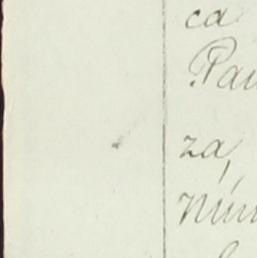 ca
Pau
za,
núm